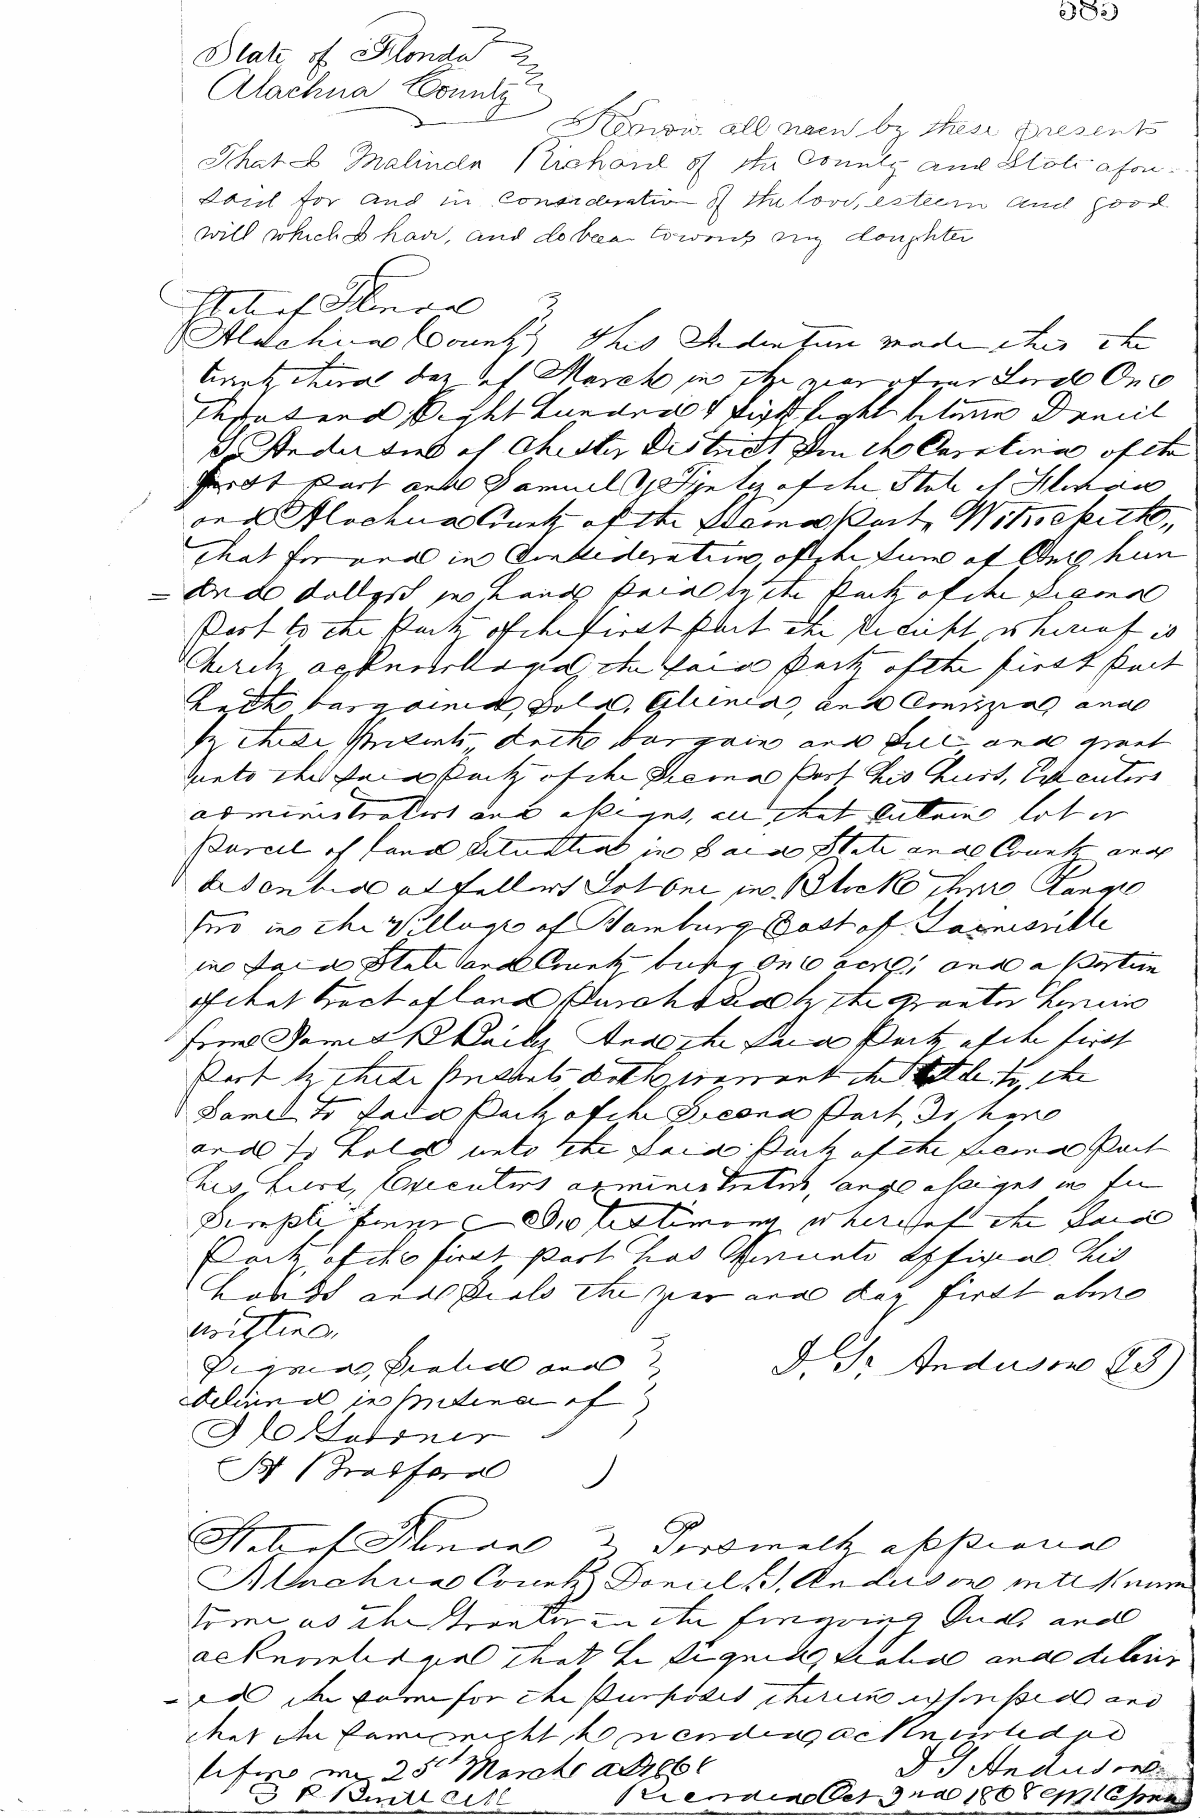 585
State of Florida
Alachua County
Know all men by these presents
That I Malinda Richard of the County and State afore-
said for and in consideration of the love, esteem and good
will which I have, and do bear towards my daughter
State of Florida
Alachua County This Indenture made this the
twenty third day of March in the year of our Lord One
Thousand Eight Hundred & Sixty Eight between Daniel
Anderson of Chester District South Carolina of the
first part and Samuel Y Finley of the State of Florida
and Alachua County of the Second Part, Witnesseth,,
that for and in Consideration of the Sum of One hun
= dred dollars in hand paid by the Party of the Second
Part to the Party of the first Part the receipt whereof is
hereby acknowledged, the said Party of the first Part
hath bargained, sold, aliened, and Conveyed, and
by these Presents,, doth bargain and sell and grant
unto the said Party of the Second Part his heirs, Executors
administrators and assigns, all that certain lot or
Parcel of land Situated in Said State and County and
described as follows Lot One in Block three Range
two in the Village of Hamburg East of Gainesville
in said State and County being One acre; and a Portion
of that tract of land Purchased by the grantor herein
from James B Bailey And the said Party of the first
Part by these presents doth warrant the title to the
Same to said Party of the Second Part, To have
and to hold unto the Said Party of the Second Part
his heirs, Executors administrators, and assigns in fee
Simple forever In testimony whereof the Said
Party of the first part has hereunto affixed his
hands and Seals the year and day first above
written,
Signed, Sealed and D. G. Anderson
delivered in presence of
J C Gardner
H Bradford
State of Florida Personally appeared
Alachua County Daniel G. Anderson well Known
to me as the Grantor in the foregoing Deed, and
acknowledged that he signed, sealed and deliver
- ed the same for the purposes therein expressed and
that the same might be recorded, acknowledge
before me 25th March AD 1868 D G Anderson
Recorded Oct 2nd 1868